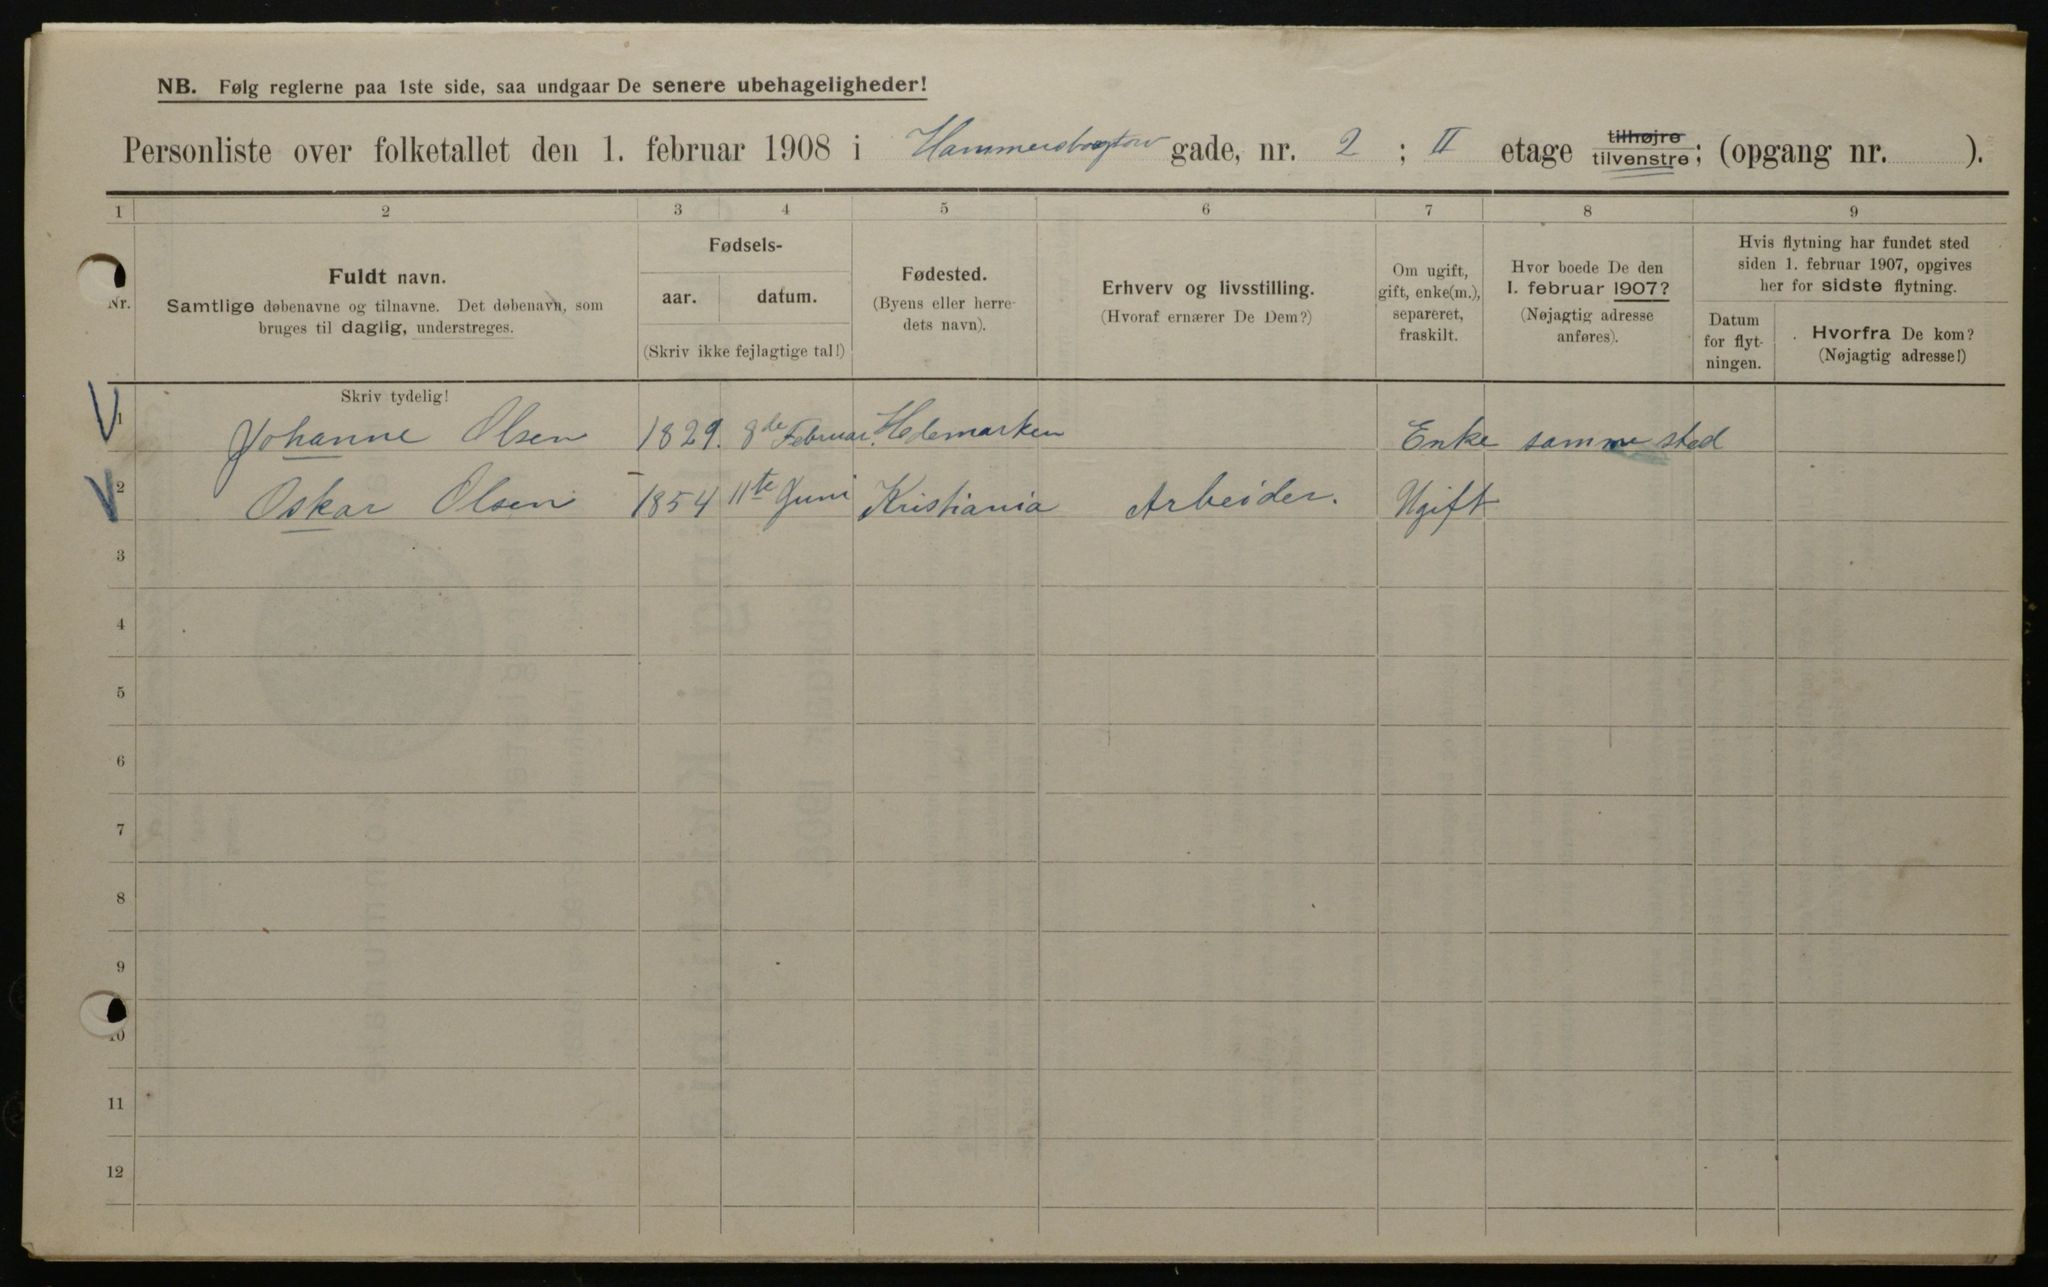 NB. Følg reglerne paa 1ste side, saa undgaar De senere ubehageligheder!
Personliste over folketallet den 1. februar 1908 i gade, nr. 2 ; II etage tilhøjre tilvenstre; (opgang nr. ).
1 2 3 4 5 6 7 8 9
Nr.
Fuldt navn.
Samtlige døbenavne og tilnavne. Det døbenavn, som
bruges til daglig, understreges.
Fødsels-
aar. datum.
(Skriv ikke fejlagtige tal!)
Fødested.
(Byens eller herre-
dets navn).
Erhverv og livsstilling.
(Hvoraf ernærer De Dem?)
Om ugift,
gift, enke(m.),
separeret,
fraskilt.
Hvor boede De den
1. februar 1907?
(Nøjagtig adresse
anføres).
Hvis flytning har fundet sted
siden 1. februar 1907, opgives
her for sidste flytning.
Datum
for flyt-
ningen.
Hvorfra De kom?
(Nøjagtig adresse!)
Skriv tydelig!
1 Johanne Olsen 1829. 8de Februar. Hedemarken Enke samme sted
2 Oskar Olsen 1854 11te Juni Kristiania Arbeider. Ugift
3
4
5
6
7
8
9
10
11
12